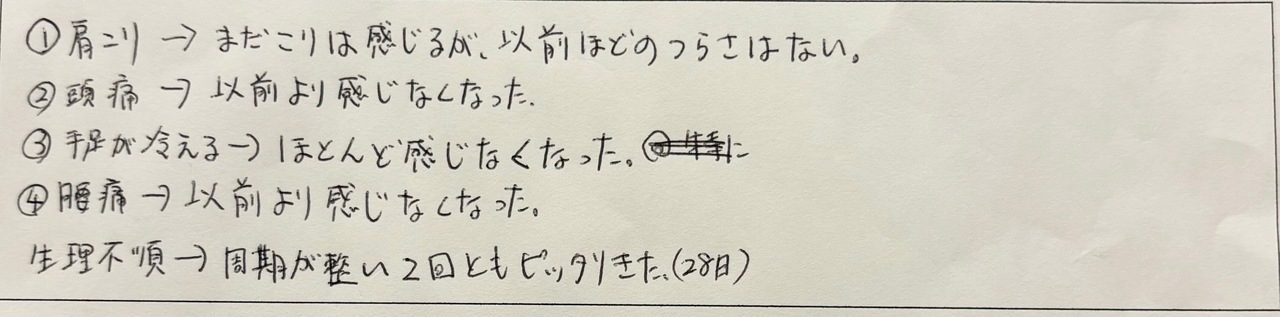 ①肩こり→まだこりは感じるが、以前ほどのつらさはない。
②頭痛→以前より感じなくなった.
③手足が冷える→ほとんど感じなくなった。
④腰痛→以前より感じなくなった。
生理不順→周期が整い2回ともピッタリきた、(28日)